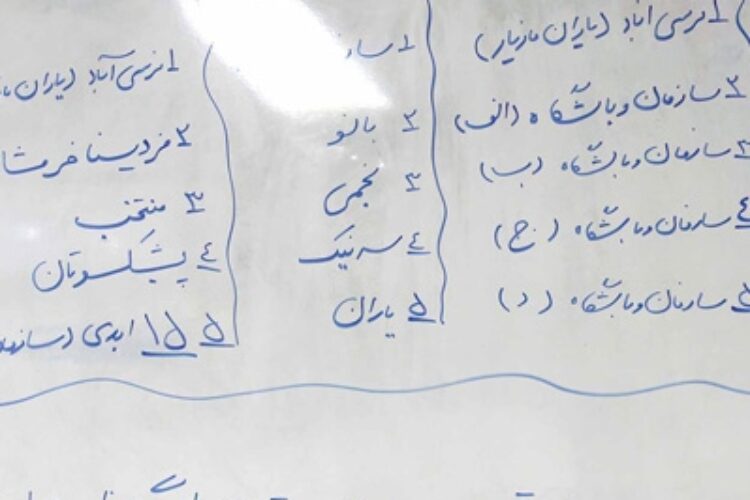 ۱ نرسی آباد (یاران مازیار)
۲ سازمان و باشگاه (الف)
۳ سازمان و باشگاه (ب)
۴ سازمان و باشگاه (ج)
۵ سازمان و باشگاه (د)
۱
۲ بانو
۳ نجمی
۴ سه نیک
۵ یاران
۱ نرسی آباد (یاران
۲ مزدیسنا
۳ منتخب
۴ پشتکسوتان
۵ ۱۵ ابدی